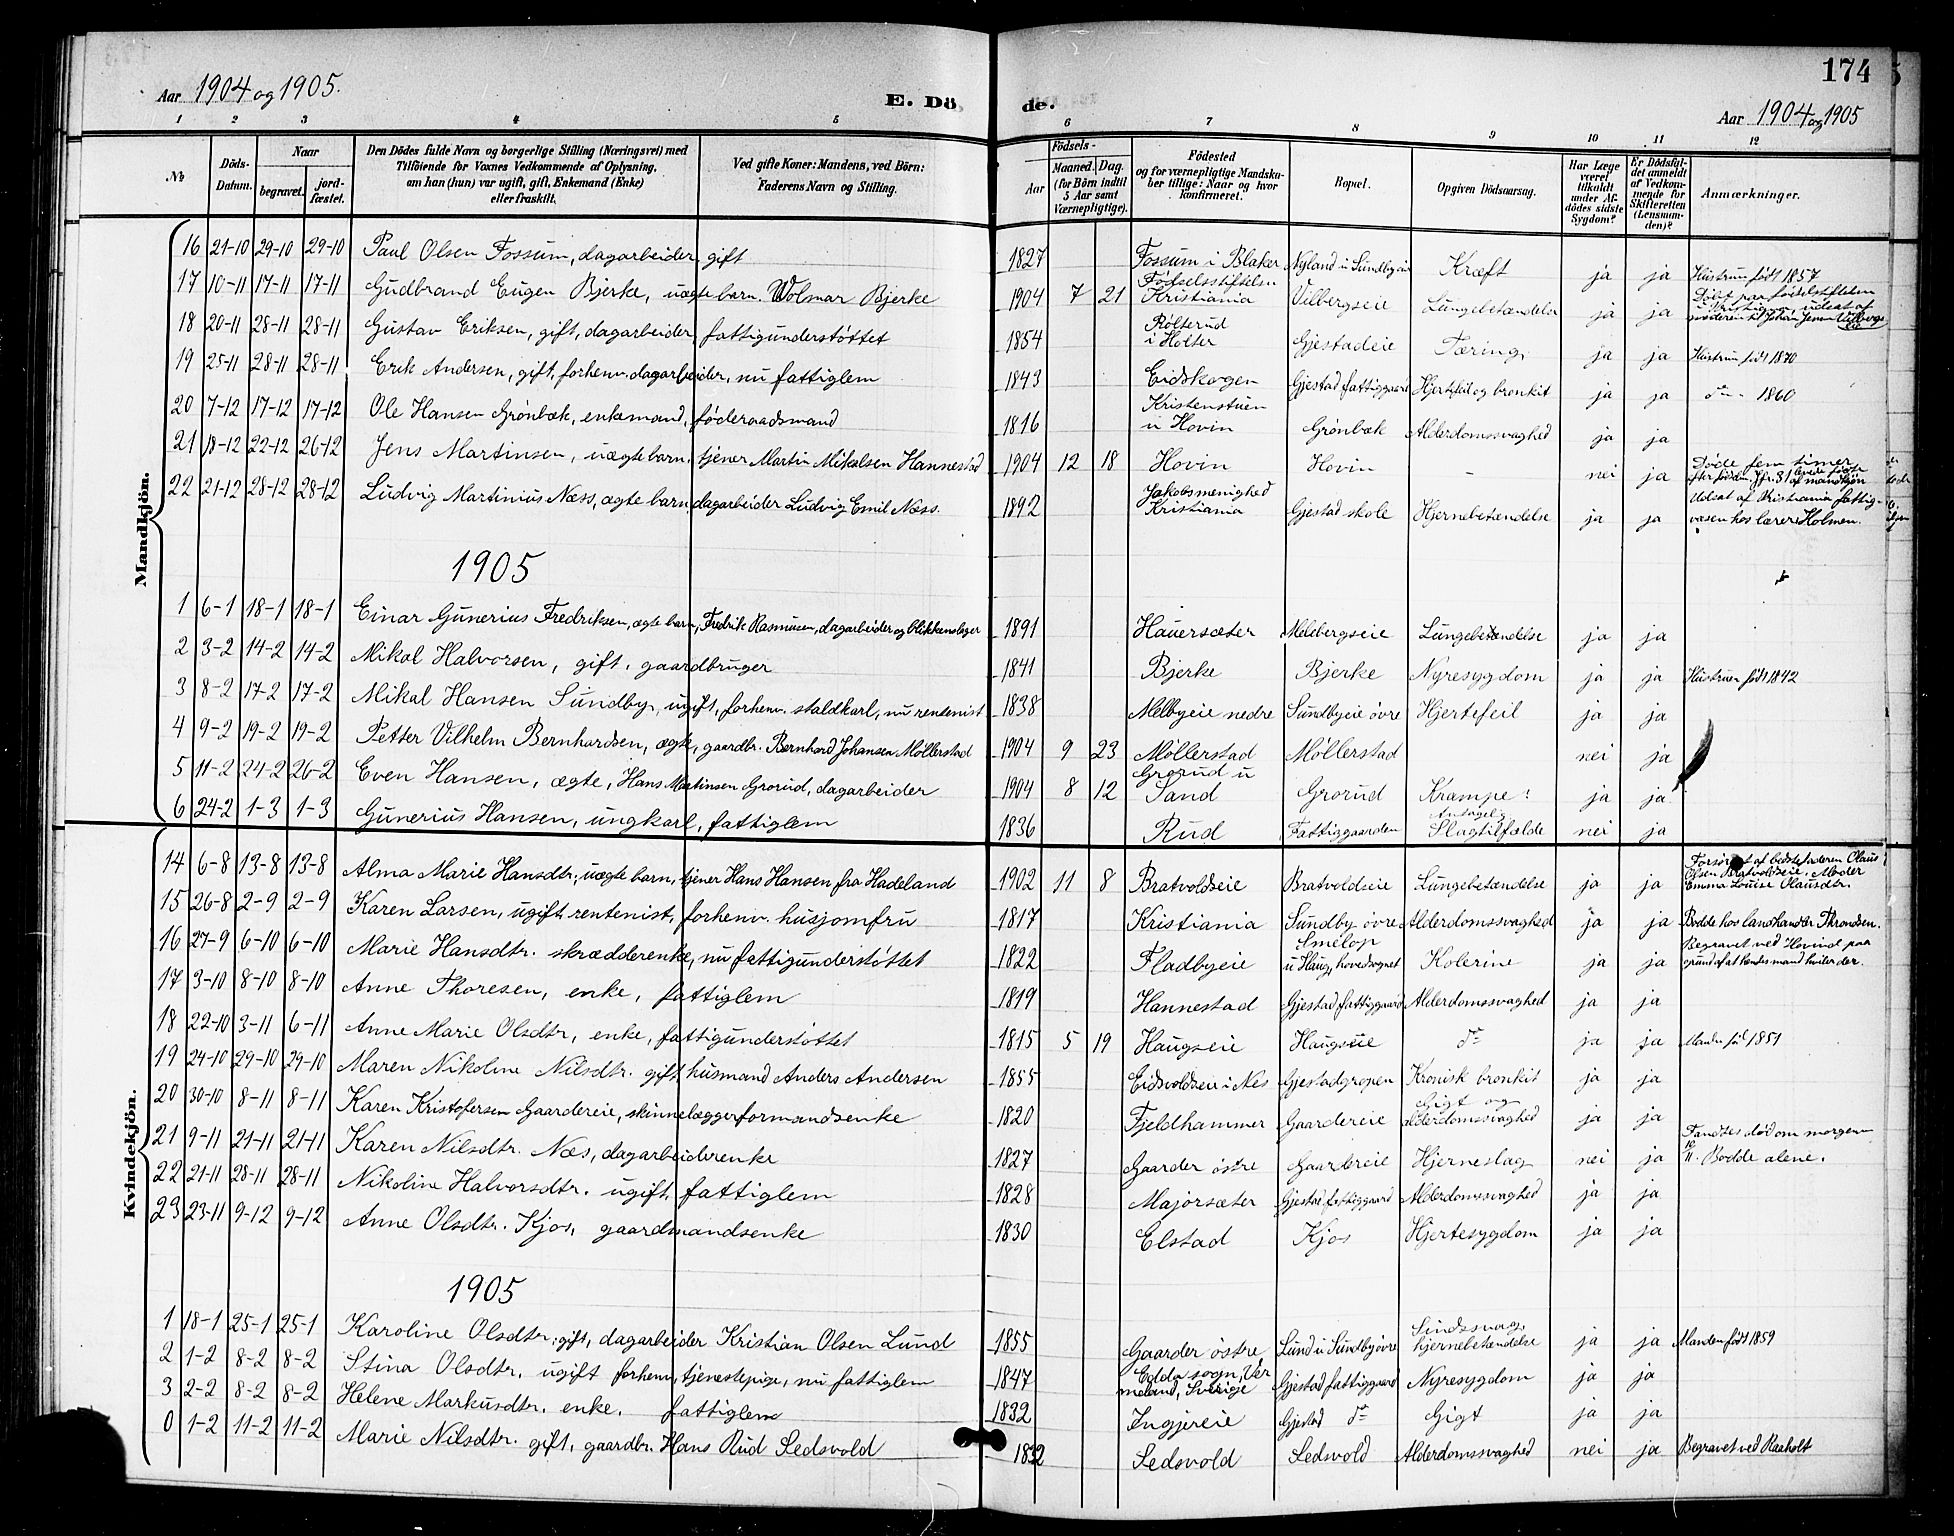 174
Aar 1904 og 1905.
E. Dö de.
Aar 1904 og 1905
1 2 3 4 5 6 7 8 9 10 11 12
No
Döds-Datum.
Naar
begravet. jordfæstet.
Den Dödes fulde Navn og borgerlige Stilling (Næringsvei) med
Tilföiende for Voxnes Vedkommende af Oplysning,
om han (hun) var ugift, gift, Enkemand (Enke)
eller fraskilt.
Ved gifte Koner: Mandens, ved Börn:
Faderens Navn og Stilling.
Födsels-
Aar Maaned. Dag.
(for Börn indtil
5 Aar samt
Værnepligtige).
Födested
og for værnepligtige Mandskaber tillige: Naar og hvor
konfirmeret.
Bopæl.
Opgiven Dödsaarsag.
Har Læge
været
tilkaldt
under Afdödes sidste
Sygdom?
Er Dödsfaldet anmeldt
af Vedkommende for
Skifteretten
(Lensmanden)?
Anmærkninger.
Mandkjön.
16 21-10 29-10 29-10 Paul Olsen Fossum, dagarbeider, gift 1827 Fossum i Blaker Nyland u Sundbyeie Kræft ja ja Hustrun født 1857
17 10-11 17-11 17-11 Gudbrand Eugen Bjerke, uægte barn. Wolmar Bjerke 1904 7 21 Fødselsstiftelsen Kristiania Vilbergseie Lungebetændelse ja ja Født paa fødselstiftelsen i Kristiania, udsat af moderen til Johan Jensen Vilbergseie
18 20-11 28-11 28-11 Gustav Eriksen, gift, dagarbeider, fattigunderstøttet 1854 Rølterud i Holter Gjestadeie Tæring ja ja Hustrun født 1870
19 25-11 28-11 28-11 Erik Andersen, gift, forhenv. dagarbeider, nu fattiglem 1843 Eidskogen Gjestad fattiggaard Hjertefeil og bronkit ja ja do - 1860
20 7-12 17-12 17-12 Ole Hansen Grønbæk, enkemand, føderaadsmand 1816 Kristenstuen u Hovin Grønbæk Alderdomssvaghed ja ja
21 18-12 22-12 26-12 Jens Martinsen, uægte barn, tjener Martin Mikalsen Hannestad 1904 12 18 Hovin Hovin - nei ja Døde fem timer efter fødslen. Jfr. 31 levende fødte af mandkjøn
22 21-12 28-12 28-12 Ludvig Martinius Næss, ægte barn, dagarbeider Ludvig Emil Næss. 1892 Jakobsmenighed Kristiania Gjestad skole Hjernebetændelse ja ja Udsat af Kristiania fattigvæsen hos lærer Holmen.
1905
1 6-1 18-1 18-1 Einar Gunerius Fredriksen, ægte barn, Fredrik Rasmusen, dagarbeider og blikkenslager 1891 Hauersæter Melbergseie Lungebetændelse ja ja
2 3-2 14-2 14-2 Mikal Halvorsen, gift, gaardbruger 1841 Bjerke Bjerke Nyresygdom ja ja Hustruen født 1842
3 8-2 17-2 17-2 Mikal Hansen Sundby, ugift, forhenv. staldkarl, nu rentenist 1838 Melbyeie nedre Sundbyeie øvre Hjertefeil ja ja
4 9-2 19-2 19-2 Petter Vilhelm Bernhardsen, ægte, gaardbr. Bernhard Johansen Møllerstad 1904 9 23 Møllerstad Møllerstad nei ja
5 11-2 24-2 26-2 Even Hansen, ægte, Hans Martinsen Grorud, dagarbeider 1904 8 12 Grorud u Sand Grorud Krampe ja ja
6 24-2 1-3 1-3 Gunerius Hansen, ungkarl, fattiglem 1836 Rud Fattiggaarden Antagelig Slagtilfælde nei ja
Kvindekjön.
14 6-8 13-8 13-8 Alma Marie Hansdtr., uægte barn, tjener Hans Hansen fra Hadeland 1902 11 8 Bratvoldseie Bratvoldseie Lungebetændelse ja ja Forsørget af bedstefaderen Olaus Olsen Bratvoldseie. Moder Emma Louise Olausdtr.
15 26-8 2-9 2-9 Karen Larsen, ugift rentenist, forhenv. husjomfru 1817 Kristiania Sundby øvre Alderdomssvaghed ja ja Bodde hos landhandler Throndsen.
16 27-9 6-10 6-10 Marie Hansdtr. skrædderenke, nu fattigunderstøttet 1822 Fladbyeie Smeløp u Haug, hovedsognet Kolerine ja ja Begravet ved Hovind paa grund af at hendes mand hviler der.
17 3-10 8-10 8-10 Anne Thoresen, enke, fattiglem 1819 Hannestad Gjestad fattiggaard Alderdomssvaghed ja ja
18 22-10 3-11 6-11 Anne Marie Olsdtr, enke, fattigunderstøttet 1815 5 19 Haugseie Haugseie do ja ja Manden fød 1851
19 24-10 29-10 29-10 Maren Nikoline Nilsdtr. gift, husmand Anders Andersen 1855 Eidsvoldseie i Nes Gjestadgropen Kronisk bronkit ja ja
20 30-10 8-11 8-11 Karen Kristofersen Gaardereie, skinnelæggerformandsenke 1820 Fjeldhammer Gaardereie Gigt og alderdomssvaghed ja ja
21 9-11 21-11 21-11 Karen Nilsdtr. Næs, dagarbeiderenke 1827 Gaarder østre Gaardereie Hjerneslag nei ja Fandtes død om morgenen 10/11. Bodde alene.
22 21-11 28-11 28-11 Nikoline Halvorsdtr. ugift, fattiglem 1828 Majorsæter Gjestad fattiggaard Alderdomssvaghed ja ja
23 23-11 9-12 9-12 Anne Olsdtr. Kjos, gaardmandsenke 1830 Elstad Kjos Hjertesygdom ja ja
1905
1 18-1 25-1 25-1 Karoline Olsdtr. gift, dagarbeider Kristian Olsen Lund 1855 Gaarder østre Lund u Sundby øvre Sindssvag, hjernebetændelse ja ja Manden født 1859
2 1-2 8-2 8-2 Stina Olsdtr. ugift forhenv. tjenestepige, nu fattiglem 1847 Edda sogn, Vermeland, Sverige Gjestad fattiggaard Nyresygdom ja ja
3 2-2 8-2 8-2 Helene Markusdtr. enke. fattiglem 1832 Ingjereie Gjestad do Gigt ja ja
0 1-2 11-2 11-2 Marie Nilsdtr. gift, gaardbr. Hans Rud Sedsvold 1832 Sedsvold Sedsvold Alderdomssvaghed nei ja Begravet ved Raaholt